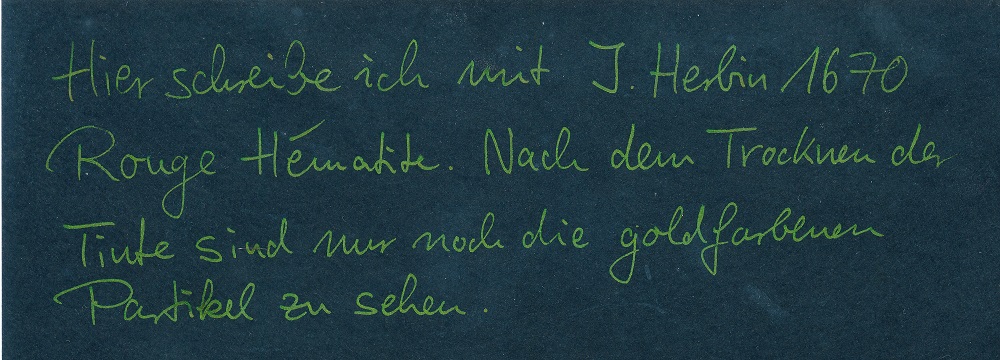 Hier schreibe ich mit J. Herbin 1670
Rouge Hématite. Nach dem Trocknen der
Tinte sind nur noch die goldfarbenen
Partikel zu sehen.